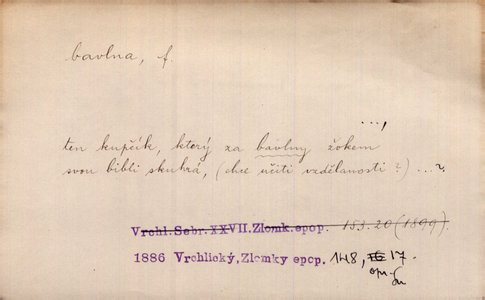 bavlna, f.
...,
ten kupčík, který za bavlny žokem
svou bibli skuhrá, (chce učiti vzdělanosti?) ...?
Vrchl.Sebr.XXVII.Zlomk.epop. 153.20 (1899).
1886 Vrchlický, Zlomky epop. 148, 17.
opr.